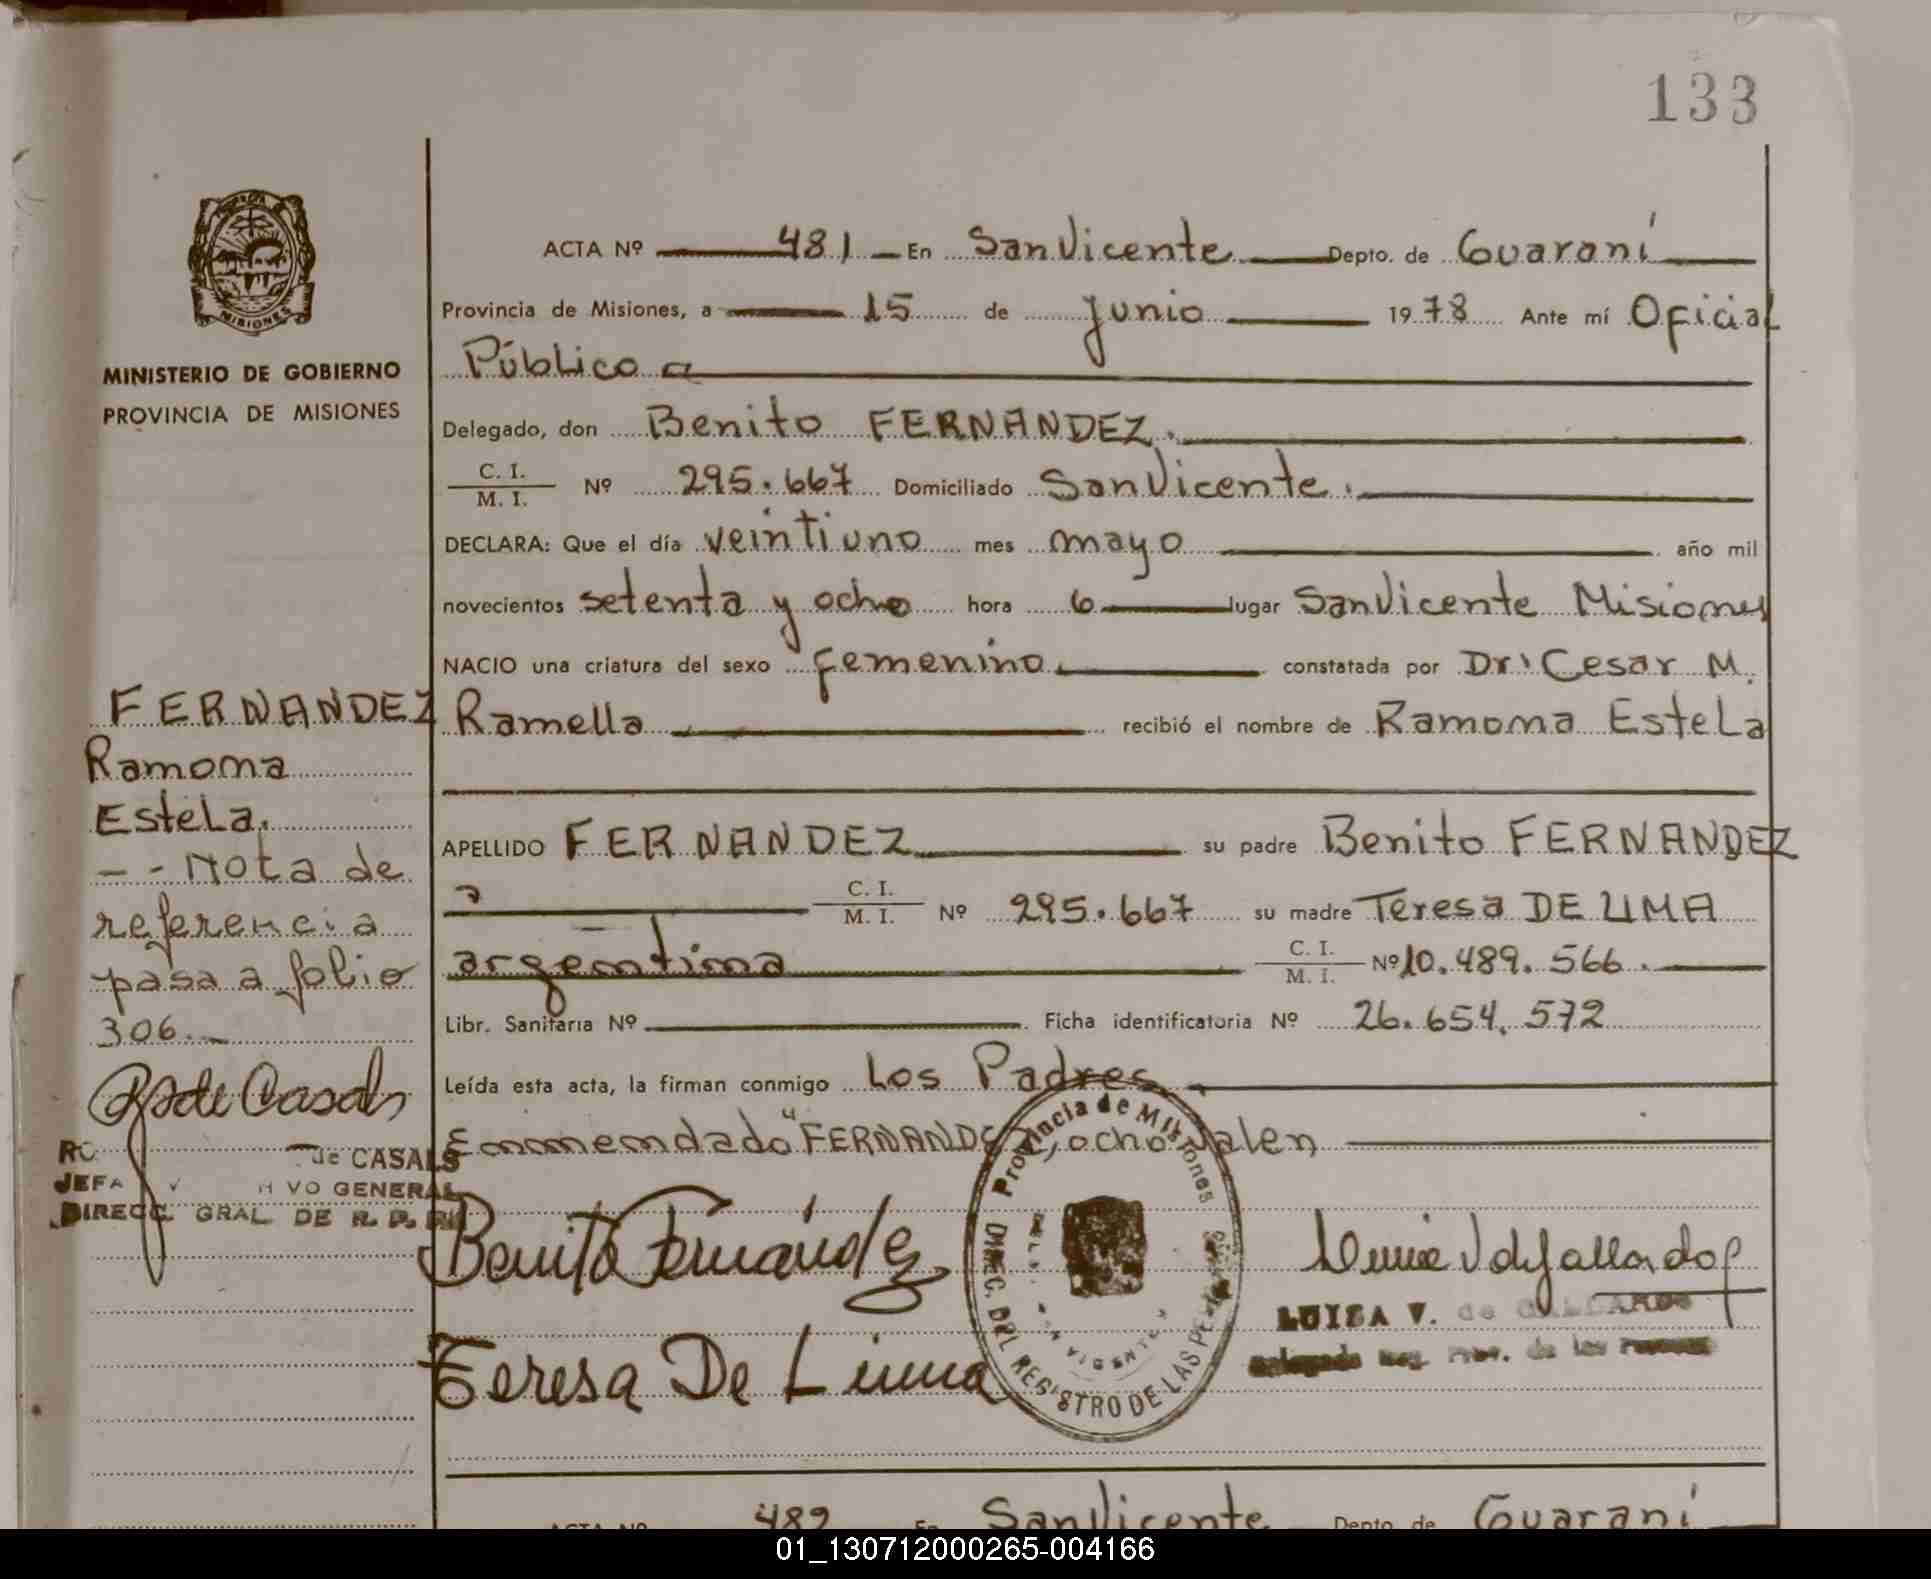 133
ACTA Nº 481 En San Vicente Depto. de Guaraní
Provincia de Misiones, a 15 de junio 1978 Ante mí Oficial
Público a
Delegado, don Benito FERNANDEZ.
C. I.
M. I. Nº 295.667 Domiciliado San Vicente.
DECLARA: Que el día veintiuno mes mayo año mil
novecientos setenta y ocho hora 6 lugar San Vicente Misiones
NACIO una criatura del sexo femenino. constatada por Dr. Cesar M.
Ramella recibió el nombre de Ramona Estela
APELLIDO FERNANDEZ su padre Benito FERNANDEZ
C. I.
M. I. Nº 295.667 su madre Teresa DE LIMA
argentina C. I.
M. I. Nº 10.489.566.
Libr. Sanitaria Nº Ficha identificatoria Nº 26.654.572
Leída esta acta, la firman conmigo Los Padres
Enmendado "FERNANDEZ, ocho valen
Benito Fernández
Teresa De Lima
Provincia de Misiones
DIREC. DEL REGISTRO DE LAS PERSONAS
SAN VICENTE
LUISA V. de GALLARDO
Delegada Reg. Prov. de las Personas
MISIONES
MINISTERIO DE GOBIERNO
PROVINCIA DE MISIONES
FERNANDEZ
Ramona
Estela.
-- Nota de
referencia
pasa a folio
306.-
de Casals
de CASALS
JEFA VO GENERAL
DIRECC. GRAL DE R. P.
ACTA Nº 482 En San Vicente Depto. de Guaraní
01_130712000265-004166